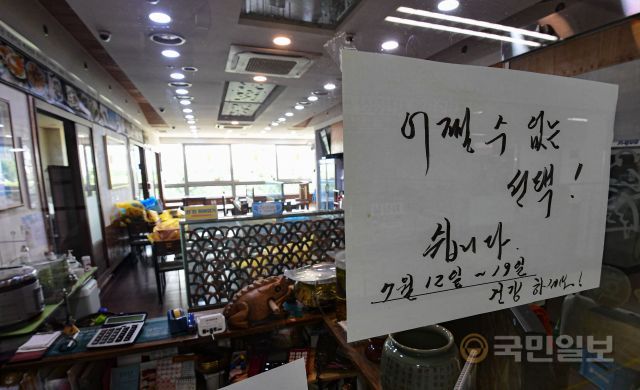 어쩔 수 없는
선택!
쉽니다.
7월 12일 ~ 19일
건강 하세요!
국민일보